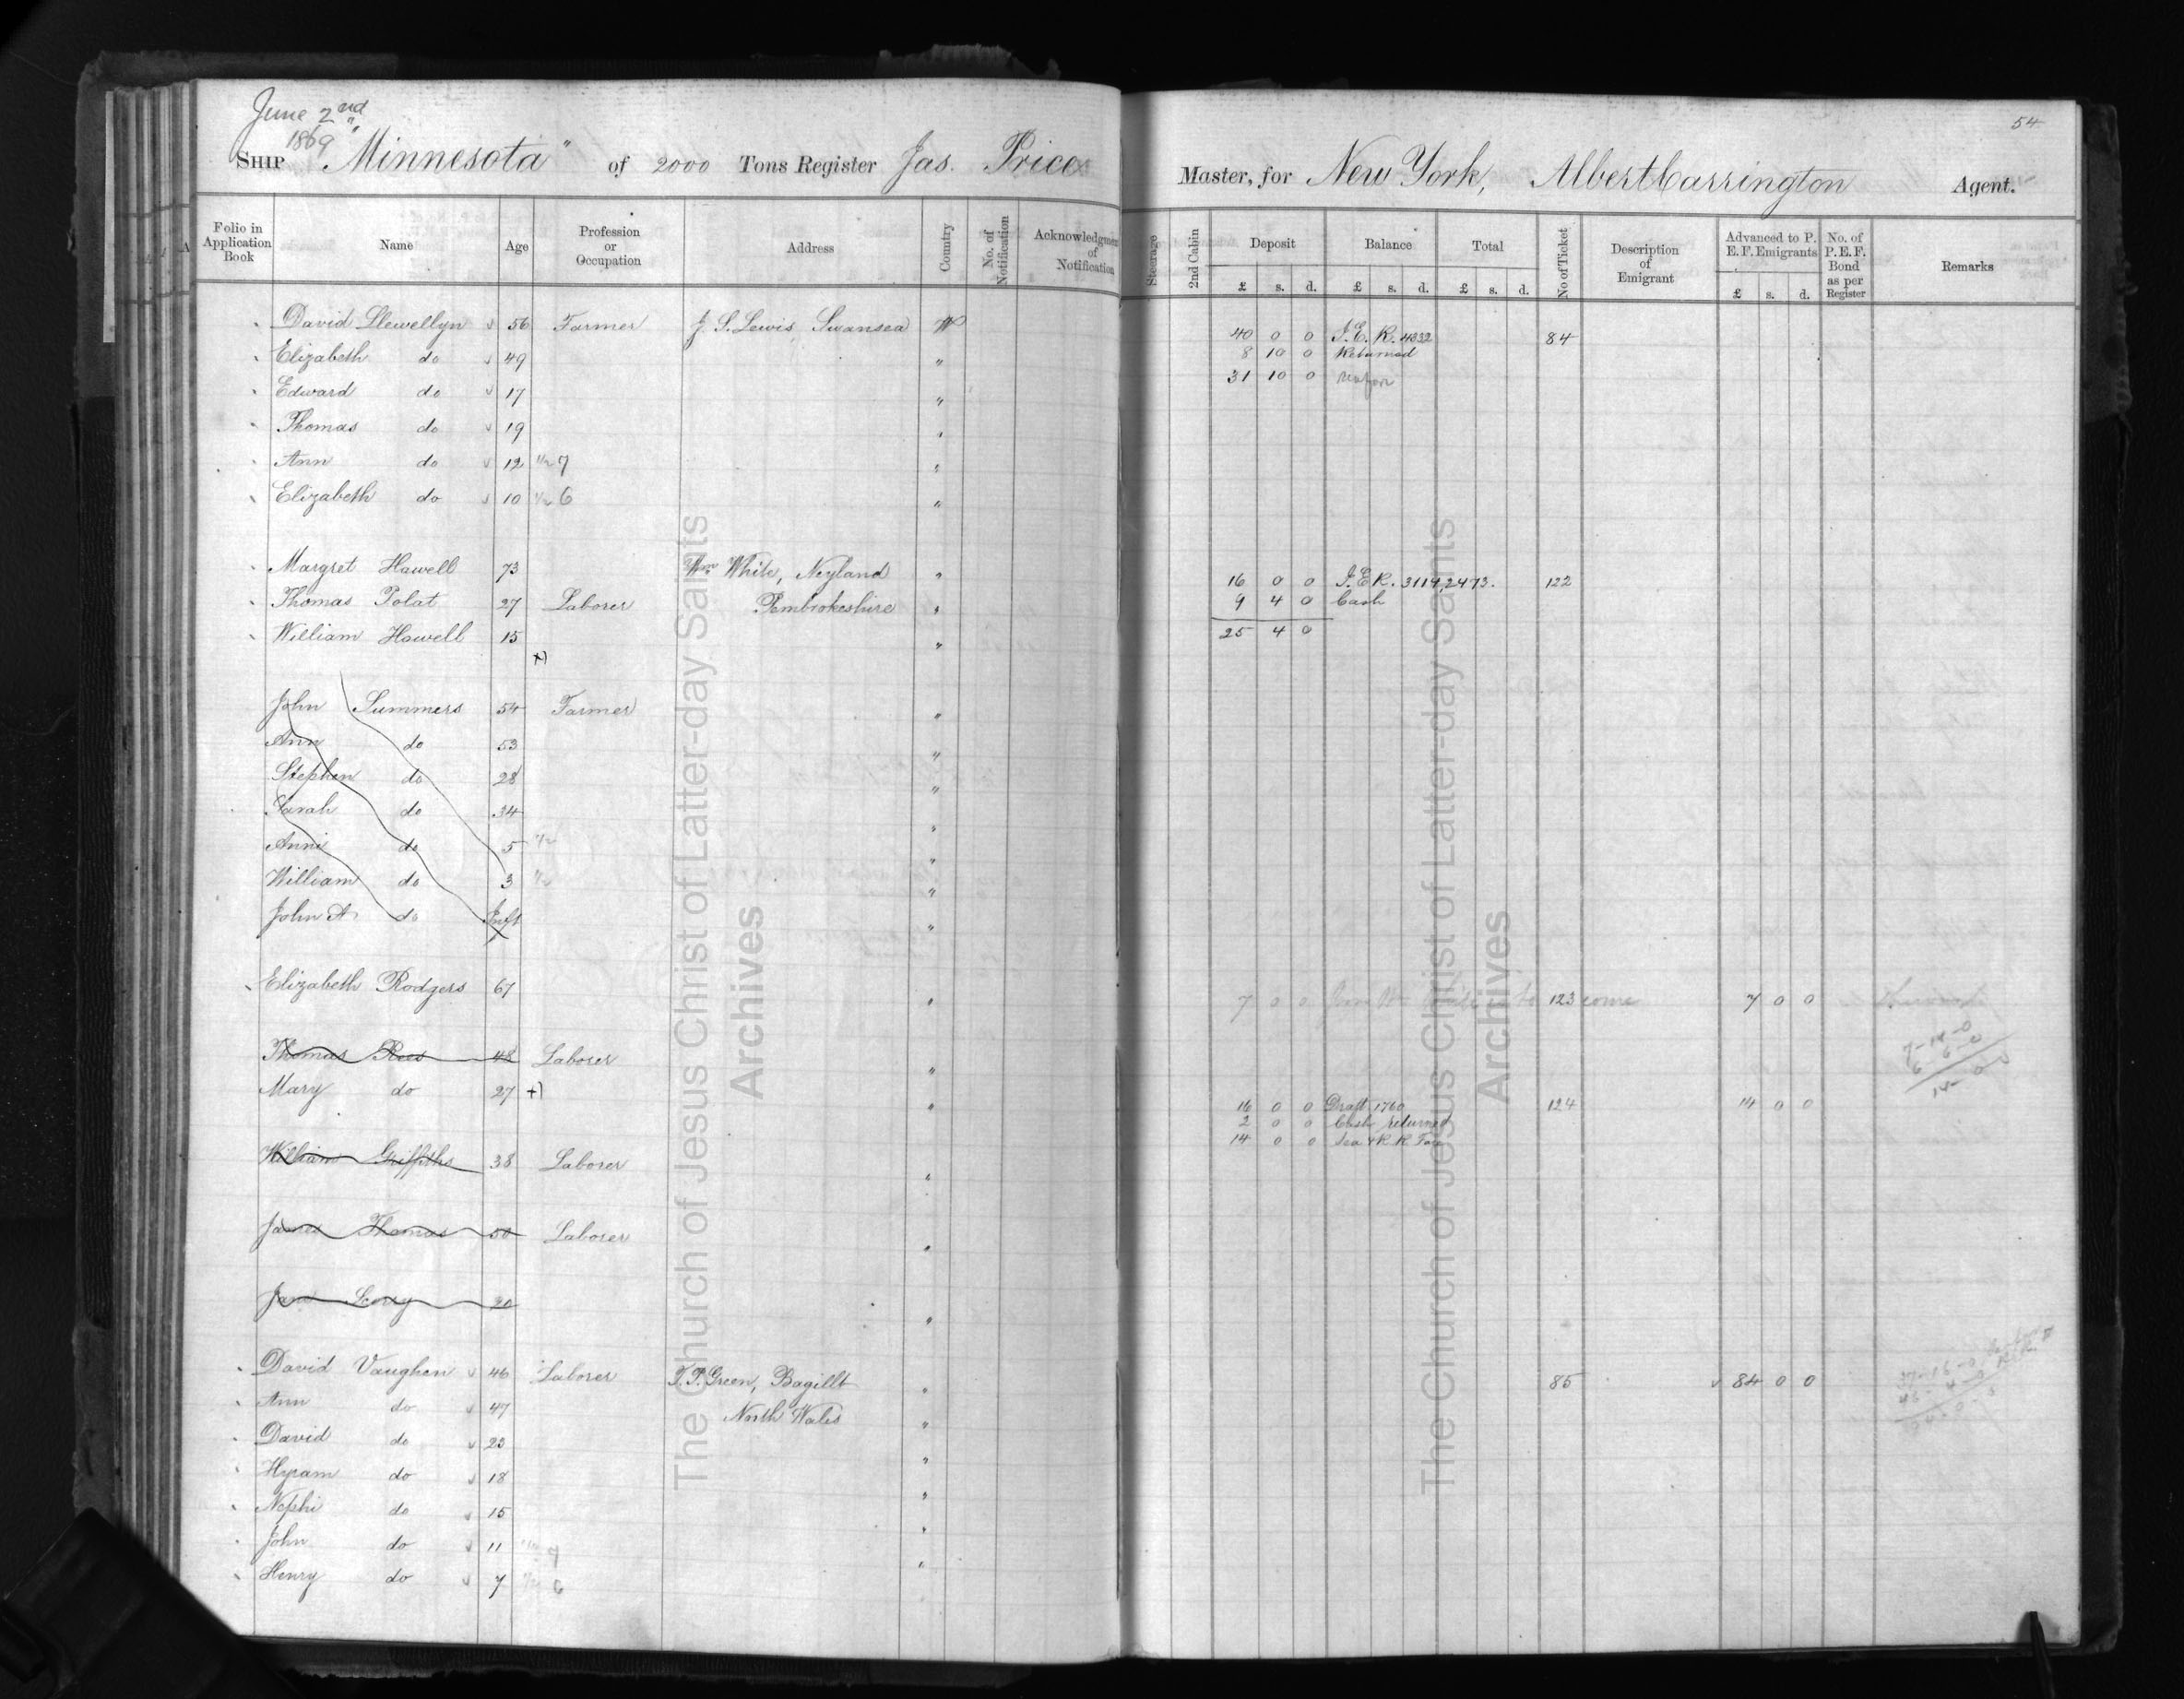 June 2nd
1869
54
SHIP "Minnesota" of 2000 Tons Register Jas. Price Master, for New York, Albert Carrington Agent.
Folio in Application Book Name Age Profession or Occupation Address Country No. of Notification Acknowledgment of Notification Steerage 2nd Cabin Deposit Balance Total No of Ticket Description of Emigrant Advanced to P. E. F. Emigrants No. of P. E. F. Bond as per Register Remarks
£ s. d. £ s. d. £ s. d. £ s. d.
David Llewellyn 56 Farmer J. S. Lewis, Swansea W 40 0 0 I.E.R. 4332 84
Elizabeth do 49 " 8 10 0 Returned
Edward do 17 " 31 10 0
Thomas do 19 "
Ann do 12 1/2 7 "
Elizabeth do 10 1/2 6 "
Margret Howell 73 Wm White, Neyland " 16 0 0 I.E.R. 3114, 2473. 122
Thomas Polat 27 Laborer Pembrokeshire " 9 4 0 Cash
William Howell 15 " 25 4 0
John Summers 54 Farmer "
Ann do 53 "
Stephen do 28 "
Sarah do 34 "
Anni do 5 1/2 "
William do 3 1/2 "
John A do Inft "
Elizabeth Rodgers 67 " 7 0 0 123 come 7 0 0
Thomas Rees 48 Laborer "
7-14-0
6-6-0
14-0-0
Mary do 27 " 16 0 0 Draft 1760 124 14 0 0
2 0 0 Cash returned
14 0 0 Sea & R. R. Fare
William Griffiths 38 Laborer "
James Thomas 50 Laborer "
Jane 20 "
David Vaughen 46 Laborer T. P. Green, Bagillt " 85 84 0 0
Ann do 47 North Wales "
David do 23 "
Hyram do 18 "
Nephi do 15 "
John do 11 "
Henry do 7 1/2 6 "
The Church of Jesus Christ of Latter-day Saints
Archives
The Church of Jesus Christ of Latter-day Saints
Archives